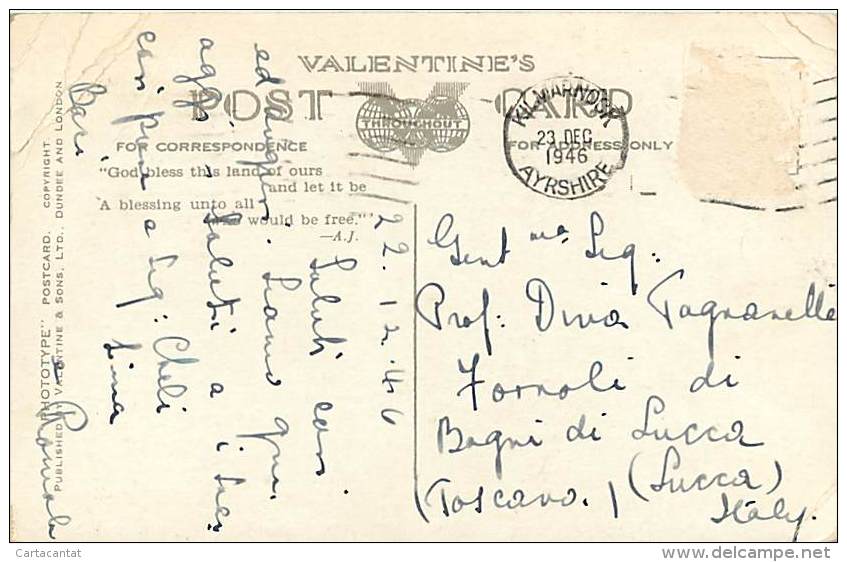 VALENTINE'S
POST CARD
THROUGHOUT
FOR CORRESPONDENCE
FOR ADDRESS ONLY
"God bless this land of ours
and let it be
A blessing unto all
who would be free."
—A.J.
KILMARNOCK
23 DEC
1946
AYRSHIRE
22.12.46
Saluti cari
ed auguri. Siamo qui
Saluti a i suoi
cari pure a Sig: Cheli
Lina
Bari
Romola
Gent ma Sig:
Prof: Diva Pagnanelli
Fornoli di
Bagni di Lucca
(Lucca)
(Toscana.)
Italy.
"PHOTOTYPE" POSTCARD. COPYRIGHT.
PUBLISHED BY VALENTINE & SONS, LTD., DUNDEE AND LONDON
Cartacantat
delcampe.net